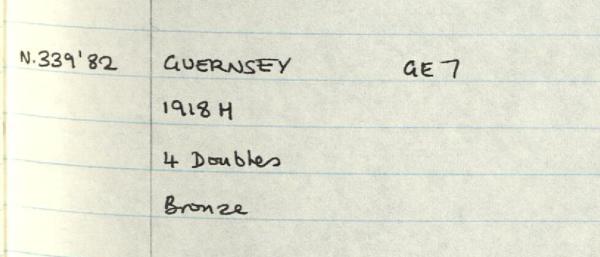 N.339'82 GUERNSEY GE7
1918 H
4 Doubles
Bronze